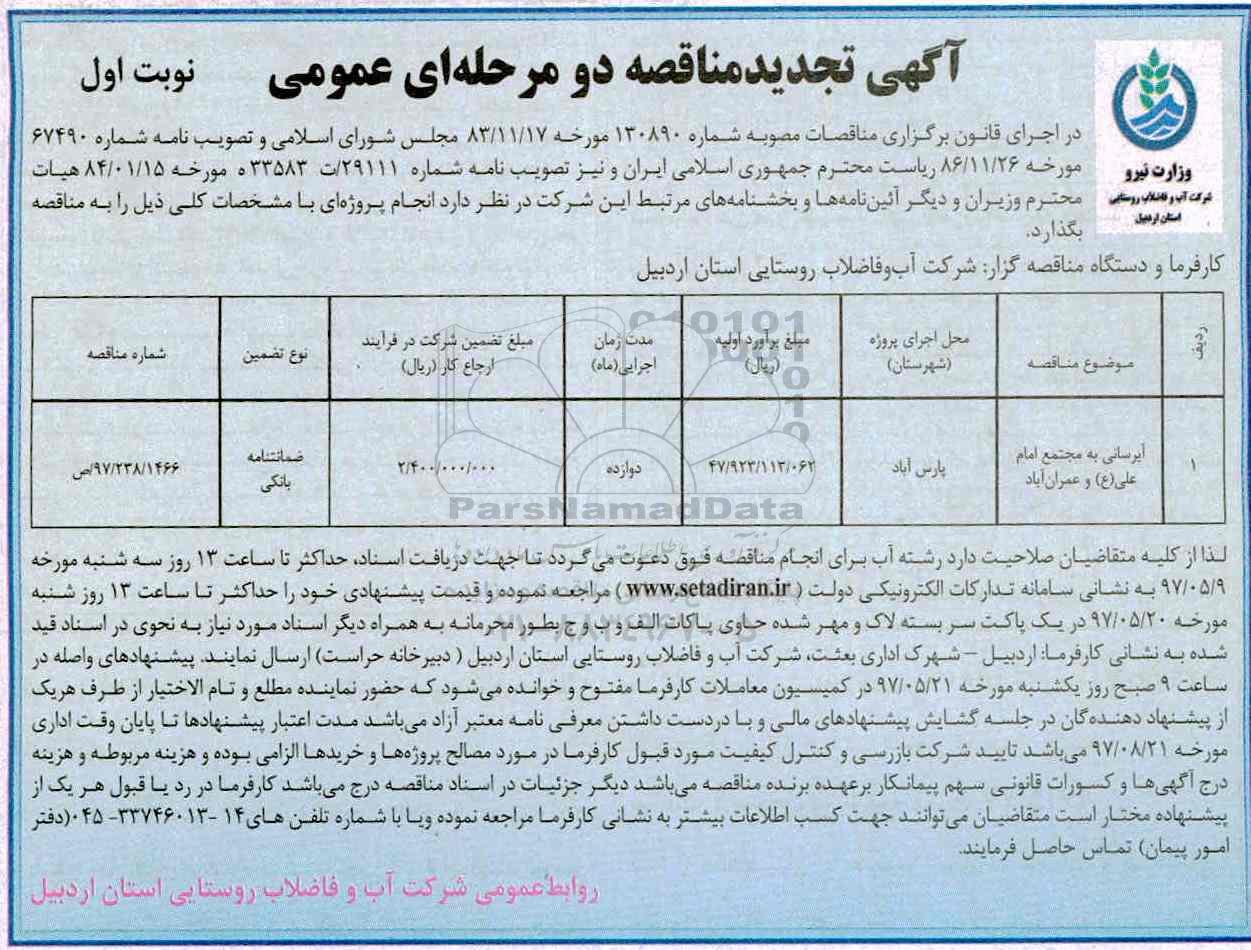 آگهی تجدیدمناقصه دو مرحله‌ای عمومی
نوبت اول
وزارت نیرو
شرکت آب و فاضلاب روستایی
استان اردبیل
در اجرای قانون برگزاری مناقصات مصوبه شماره ۱۳۰۸۹۰ مورخه ۸۳/۱۱/۱۷ مجلس شورای اسلامی و تصویب نامه شماره ۶۷۴۹۰
مورخه ۸۶/۱۱/۲۶ ریاست محترم جمهوری اسلامی ایران و نیز تصویب نامه شماره ۲۹۱۱۱/ت ۳۳۵۸۳ ه مورخه ۸۴/۰۱/۱۵ هیات
محترم وزیران و دیگر آئین‌نامه‌ها و بخشنامه‌های مرتبط این شرکت در نظر دارد انجام پروژه‌ای با مشخصات کلی ذیل را به مناقصه
بگذارد.
کارفرما و دستگاه مناقصه گزار: شرکت آب‌وفاضلاب روستایی استان اردبیل
ردیف
موضوع مناقصه
محل اجرای پروژه
(شهرستان)
مبلغ برآورد اولیه
(ریال)
مدت زمان
اجرایی(ماه)
مبلغ تضمین شرکت در فرآیند
ارجاع کار (ریال)
نوع تضمین
شماره مناقصه
۱
آبرسانی به مجتمع امام
علی(ع) و عمران‌آباد
پارس آباد
۴۷/۹۲۳/۱۱۳/۰۶۲
دوازده
۲/۴۰۰/۰۰۰/۰۰۰
ضمانتنامه
بانکی
۹۷/۲۳۸/۱۴۶۶/ص
ParsNamadData
لذا از کلیه متقاضیان صلاحیت دارد رشته آب برای انجام مناقصه فوق دعوت می‌گردد تا جهت دریافت اسناد، حداکثر تا ساعت ۱۳ روز سه شنبه مورخه
۹۷/۰۵/۹ به نشانی سامانه تدارکات الکترونیکی دولت ( www.setadiran.ir ) مراجعه نموده و قیمت پیشنهادی خود را حداکثر تا ساعت ۱۳ روز شنبه
مورخه ۹۷/۰۵/۲۰ در یک پاکت سر بسته لاک و مهر شده حاوی پاکات الف و ب و ج بطور محرمانه به همراه دیگر اسناد مورد نیاز به نحوی در اسناد قید
شده به نشانی کارفرما: اردبیل – شهرک اداری بعثت، شرکت آب و فاضلاب روستایی استان اردبیل ( دبیرخانه حراست) ارسال نمایند. پیشنهادهای واصله در
ساعت ۹ صبح روز یکشنبه مورخه ۹۷/۰۵/۲۱ در کمیسیون معاملات کارفرما مفتوح و خوانده می‌شود که حضور نماینده مطلع و تام الاختیار از طرف هریک
از پیشنهاد دهنده‌گان در جلسه گشایش پیشنهادهای مالی و با دردست داشتن معرفی نامه معتبر آزاد می‌باشد مدت اعتبار پیشنهادها تا پایان وقت اداری
مورخه ۹۷/۰۸/۲۱ می‌باشد تایید شرکت بازرسی و کنترل کیفیت مورد قبول کارفرما در مورد مصالح پروژه‌ها و خریدها الزامی بوده و هزینه مربوطه و هزینه
درج آگهی‌ها و کسورات قانونی سهم پیمانکار برعهده برنده مناقصه می‌باشد دیگر جزئیات در اسناد مناقصه درج می‌باشد کارفرما در رد یا قبول هر یک از
پیشنهاده مختار است متقاضیان می‌توانند جهت کسب اطلاعات بیشتر به نشانی کارفرما مراجعه نموده ویا با شماره تلفن های ۱۴ -۳۳۷۴۶۰۱۳- ۰۴۵(دفتر
امور پیمان) تماس حاصل فرمایند.
روابط‌عمومی شرکت آب و فاضلاب روستایی استان اردبیل